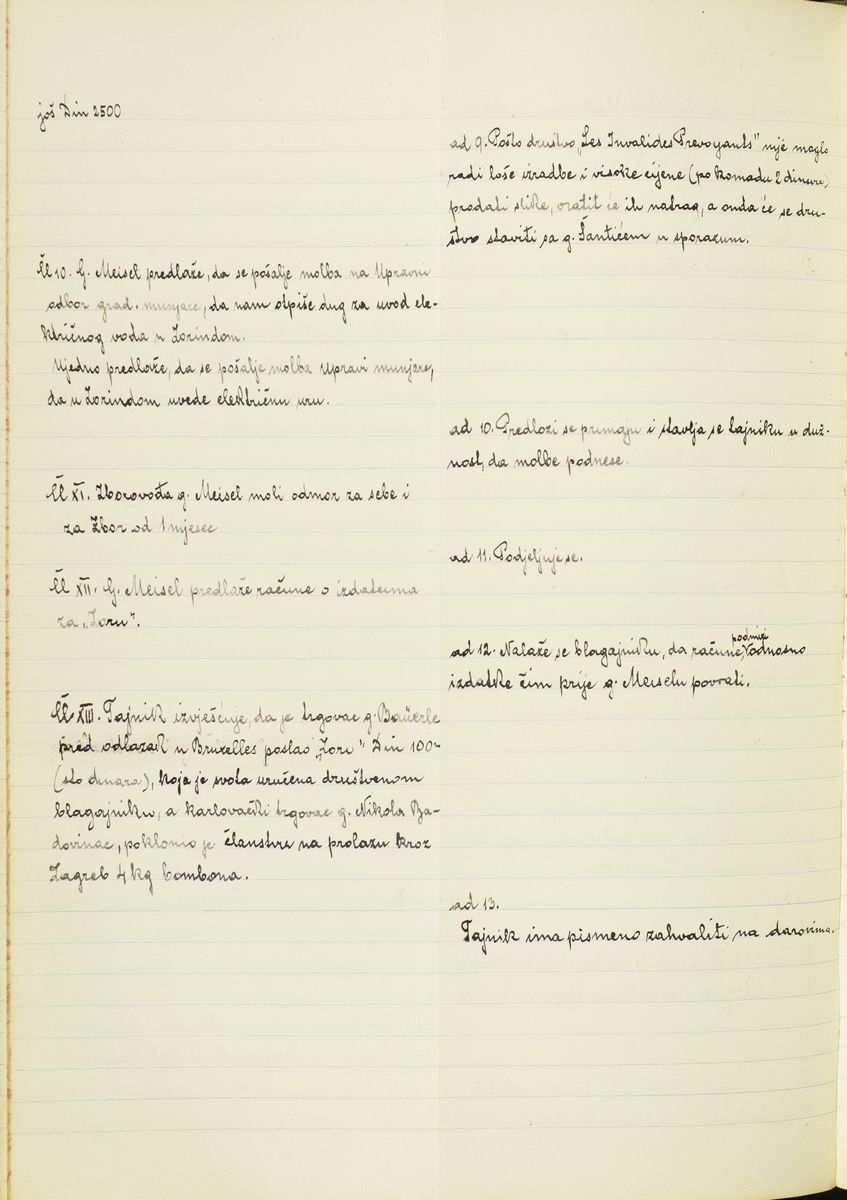 još Din 2500
Čl 10. G. Meisel predlaže, da se pošalje molba na Upravni
odbor grad. munjare, da nam otpiše dug za uvod ele-
ktričnog voda u Zorindom.
Ujedno predlaže, da se pošalje molba Upravi munjare,
da u Zorindom uvede električnu uru.
Čl XI. Zborovođa g. Meisel moli odmor za sebe i
za Zbor od 1 mjesec
Čl XII. G. Meisel predlaže račune o izdatcima
za „Zoru".
Čl XIII. Tajnik izvješćuje, da je trgovac g. Baüerle
pred odlazak u Bruxelles poslao „Zori" Din 100-
(sto dinara), koja je svota uručena društvenom
blagajniku, a karlovački trgovac g. Nikola Ba-
dovinac, poklonio je članstvu na prolazu kroz
Zagreb 4 kg bombona.
ad 9. Pošto društvo „Les Invalides Prevoyants" nije moglo
radi loše izradbe i visoke cijene (po komadu 2 dinara)
prodati slike, vratit će ih natrag, a onda će se dru-
štvo staviti sa g. Šantićem u sporazum.
ad 10. Predlozi se primaju i stavlja se tajniku u duž-
nost, da molbe podnese.
ad 11. Podjeljuje se.
ad 12. Nalaže se blagajniku, da račune podmiri odnosno
izdatke čim prije g. Meiselu povrati.
ad 13.
Tajnik ima pismeno zahvaliti na darovima.